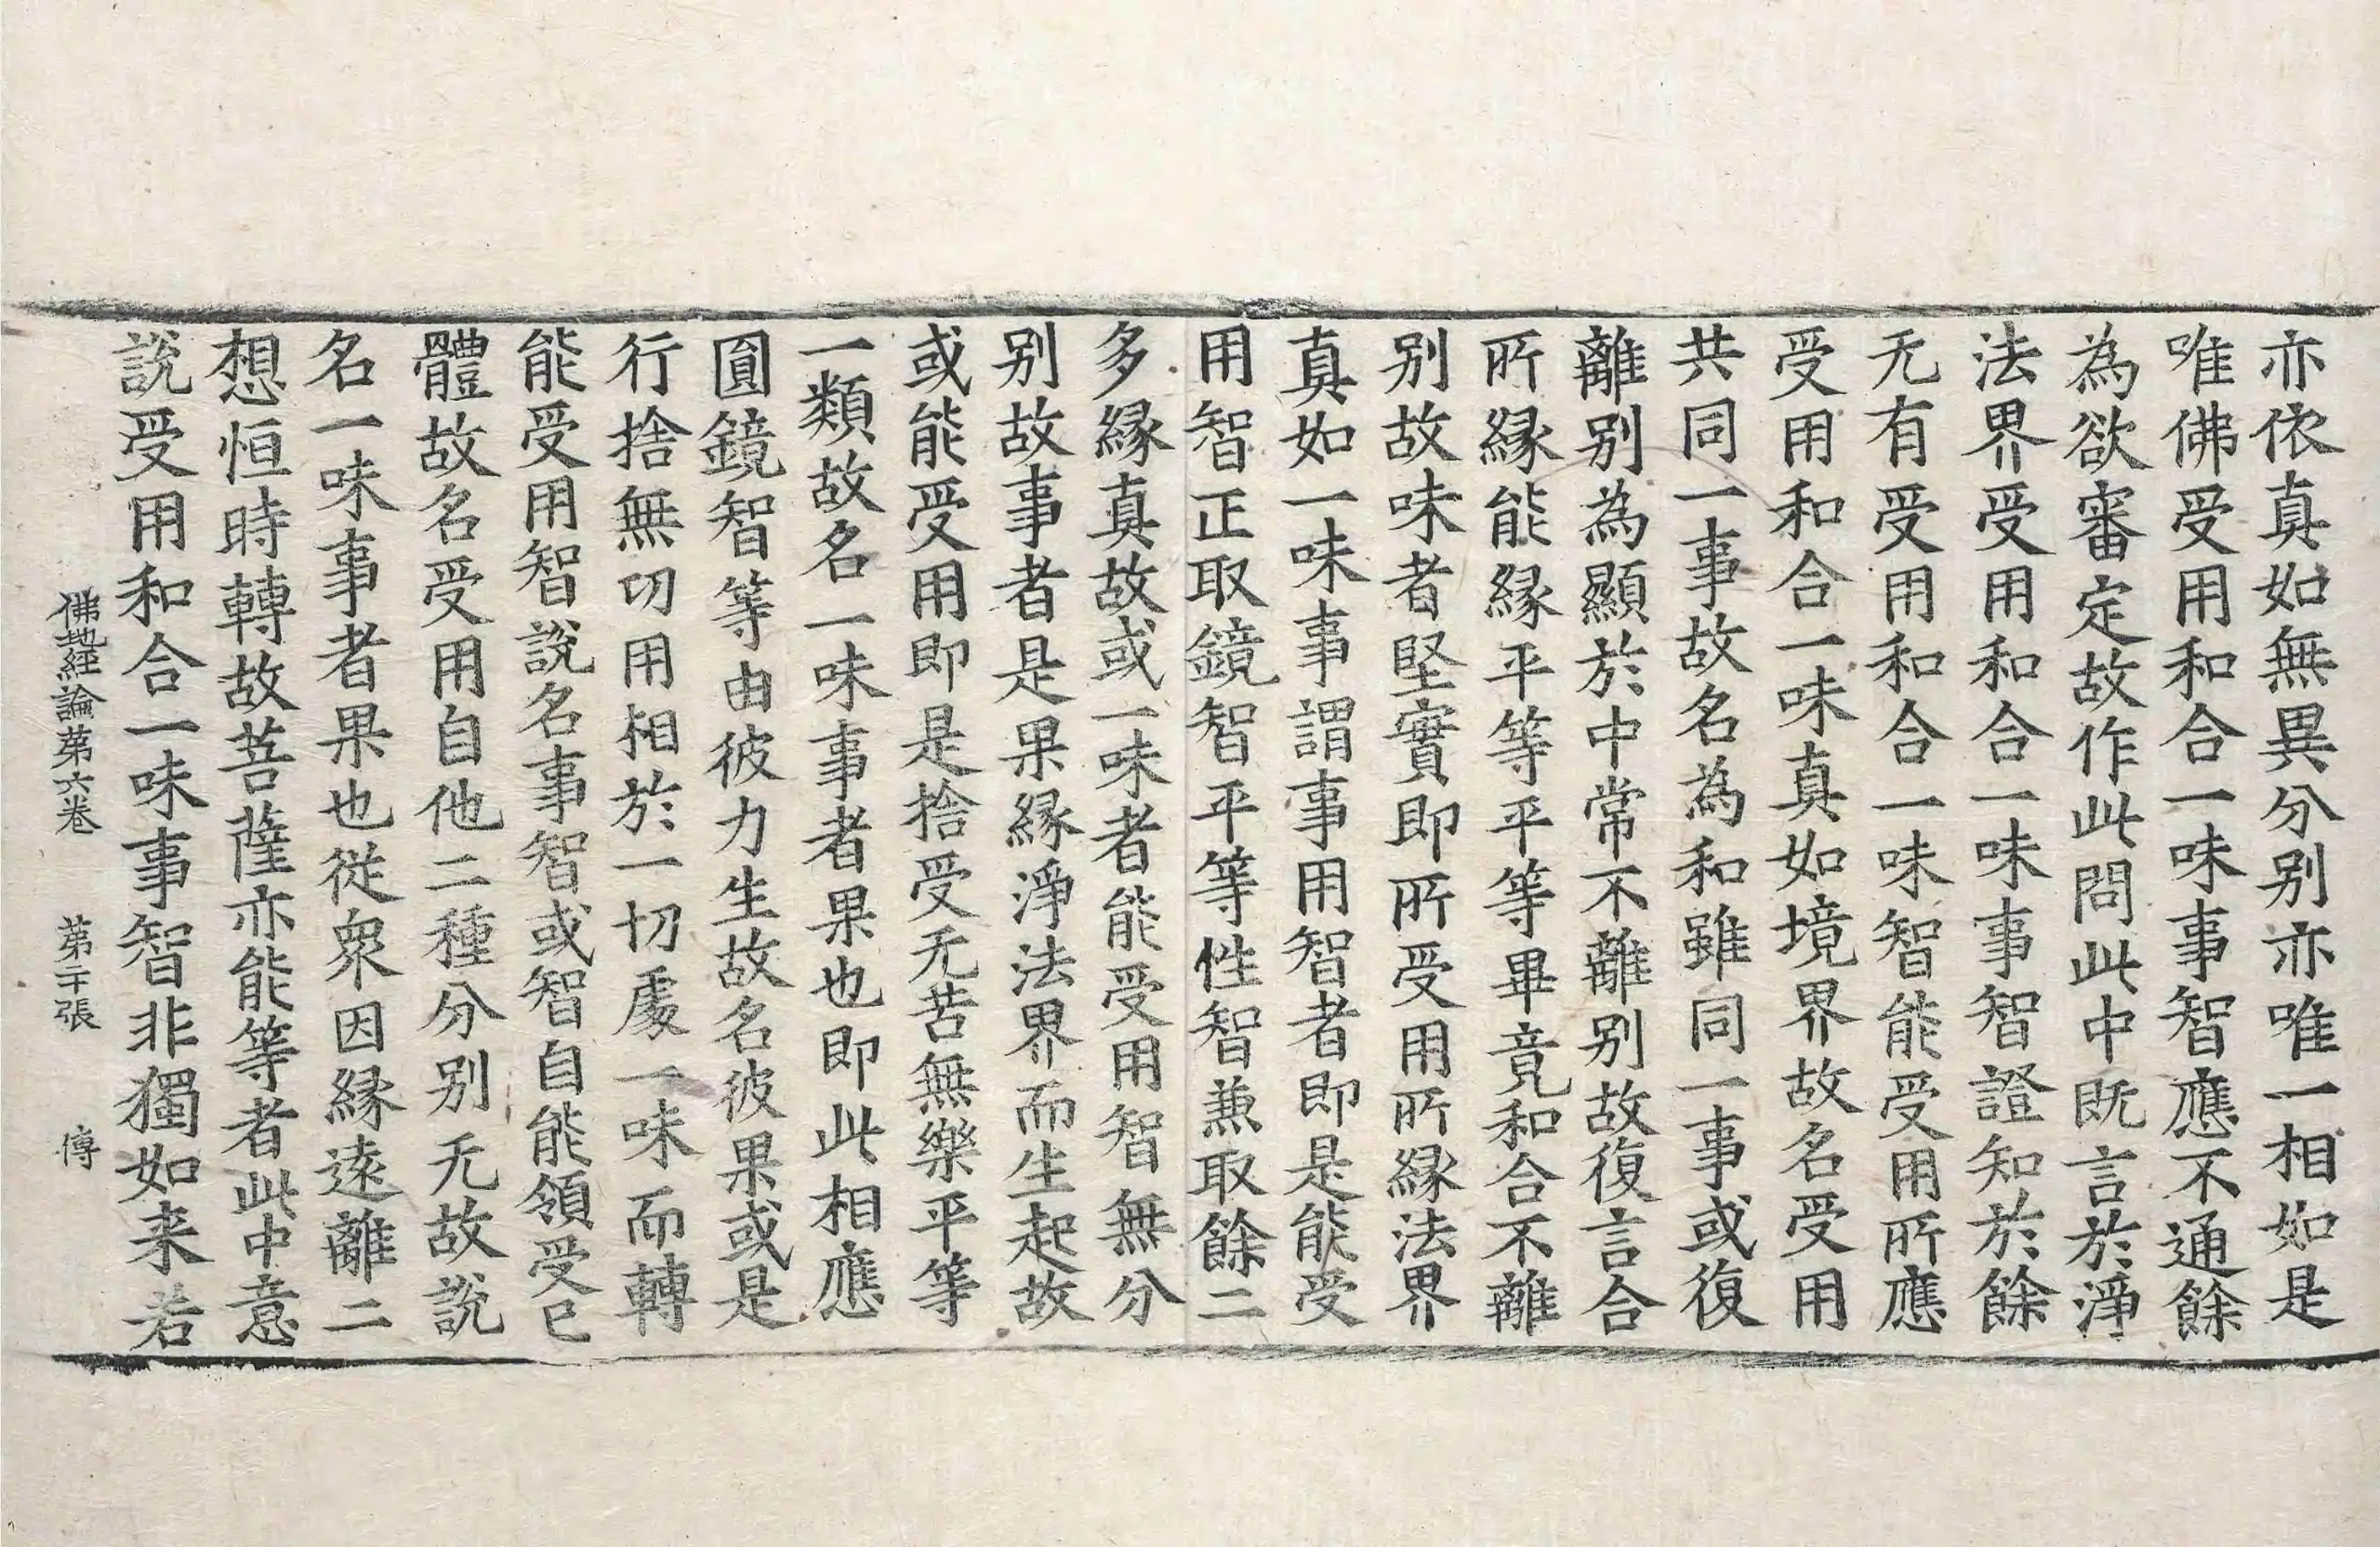 亦依真如無異分别亦唯一相如是
唯佛受用和合一味事智應不通餘
為欲審定故作此問此中既言於淨
法界受用和合一味事智證知於餘
无有受用和合一味智能受用所應
受用和合一味真如境界故名受用
共同一事故名為和雖同一事或復
離别為顯於中常不離别故復言合
所縁能縁平等平等畢竟和合不離
别故味者堅實即所受用所縁法界
真如一味事謂事用智者即是能受
用智正取鏡智平等性智兼取餘二
多縁真故或一味者能受用智無分
别故事者是果縁淨法界而生起故
或能受用即是捨受无苦無樂平等
一類故名一味事者果也即此相應
圎鏡智等由彼力生故名彼果或是
行捨無功用相於一切處一味而轉
能受用智說名事智或智自能領受已
體故名受用自他二種分别无故說
名一味事者果也從衆因縁逺離二
想恒時轉故菩薩亦能等者此中意
說受用和合一味事智非獨如来若
佛地經論苐六卷 苐二十張 傳